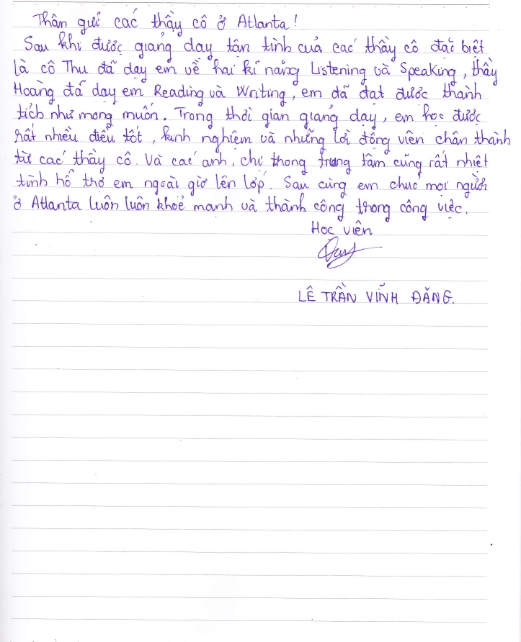 Thân gửi các thầy cô ở Atlanta!
Sau khi được giảng dạy tận tình của các thầy cô đặc biệt
là cô Thu đã dạy em về hai kĩ năng Listening và Speaking, thầy
Hoàng đã dạy em Reading và Writing, em đã đạt được thành
tích như mong muốn. Trong thời gian giảng dạy, em học được
rất nhiều điều tốt, kinh nghiệm và những lời động viên chân thành
từ các thầy cô. Và các anh, chị trong trung tâm cũng rất nhiệt
tình hỗ trợ em ngoài giờ lên lớp. Sau cùng em chúc mọi người
ở Atlanta luôn luôn khoẻ mạnh và thành công trong công việc.
Học viên
LÊ TRẦN VĨNH ĐĂNG.